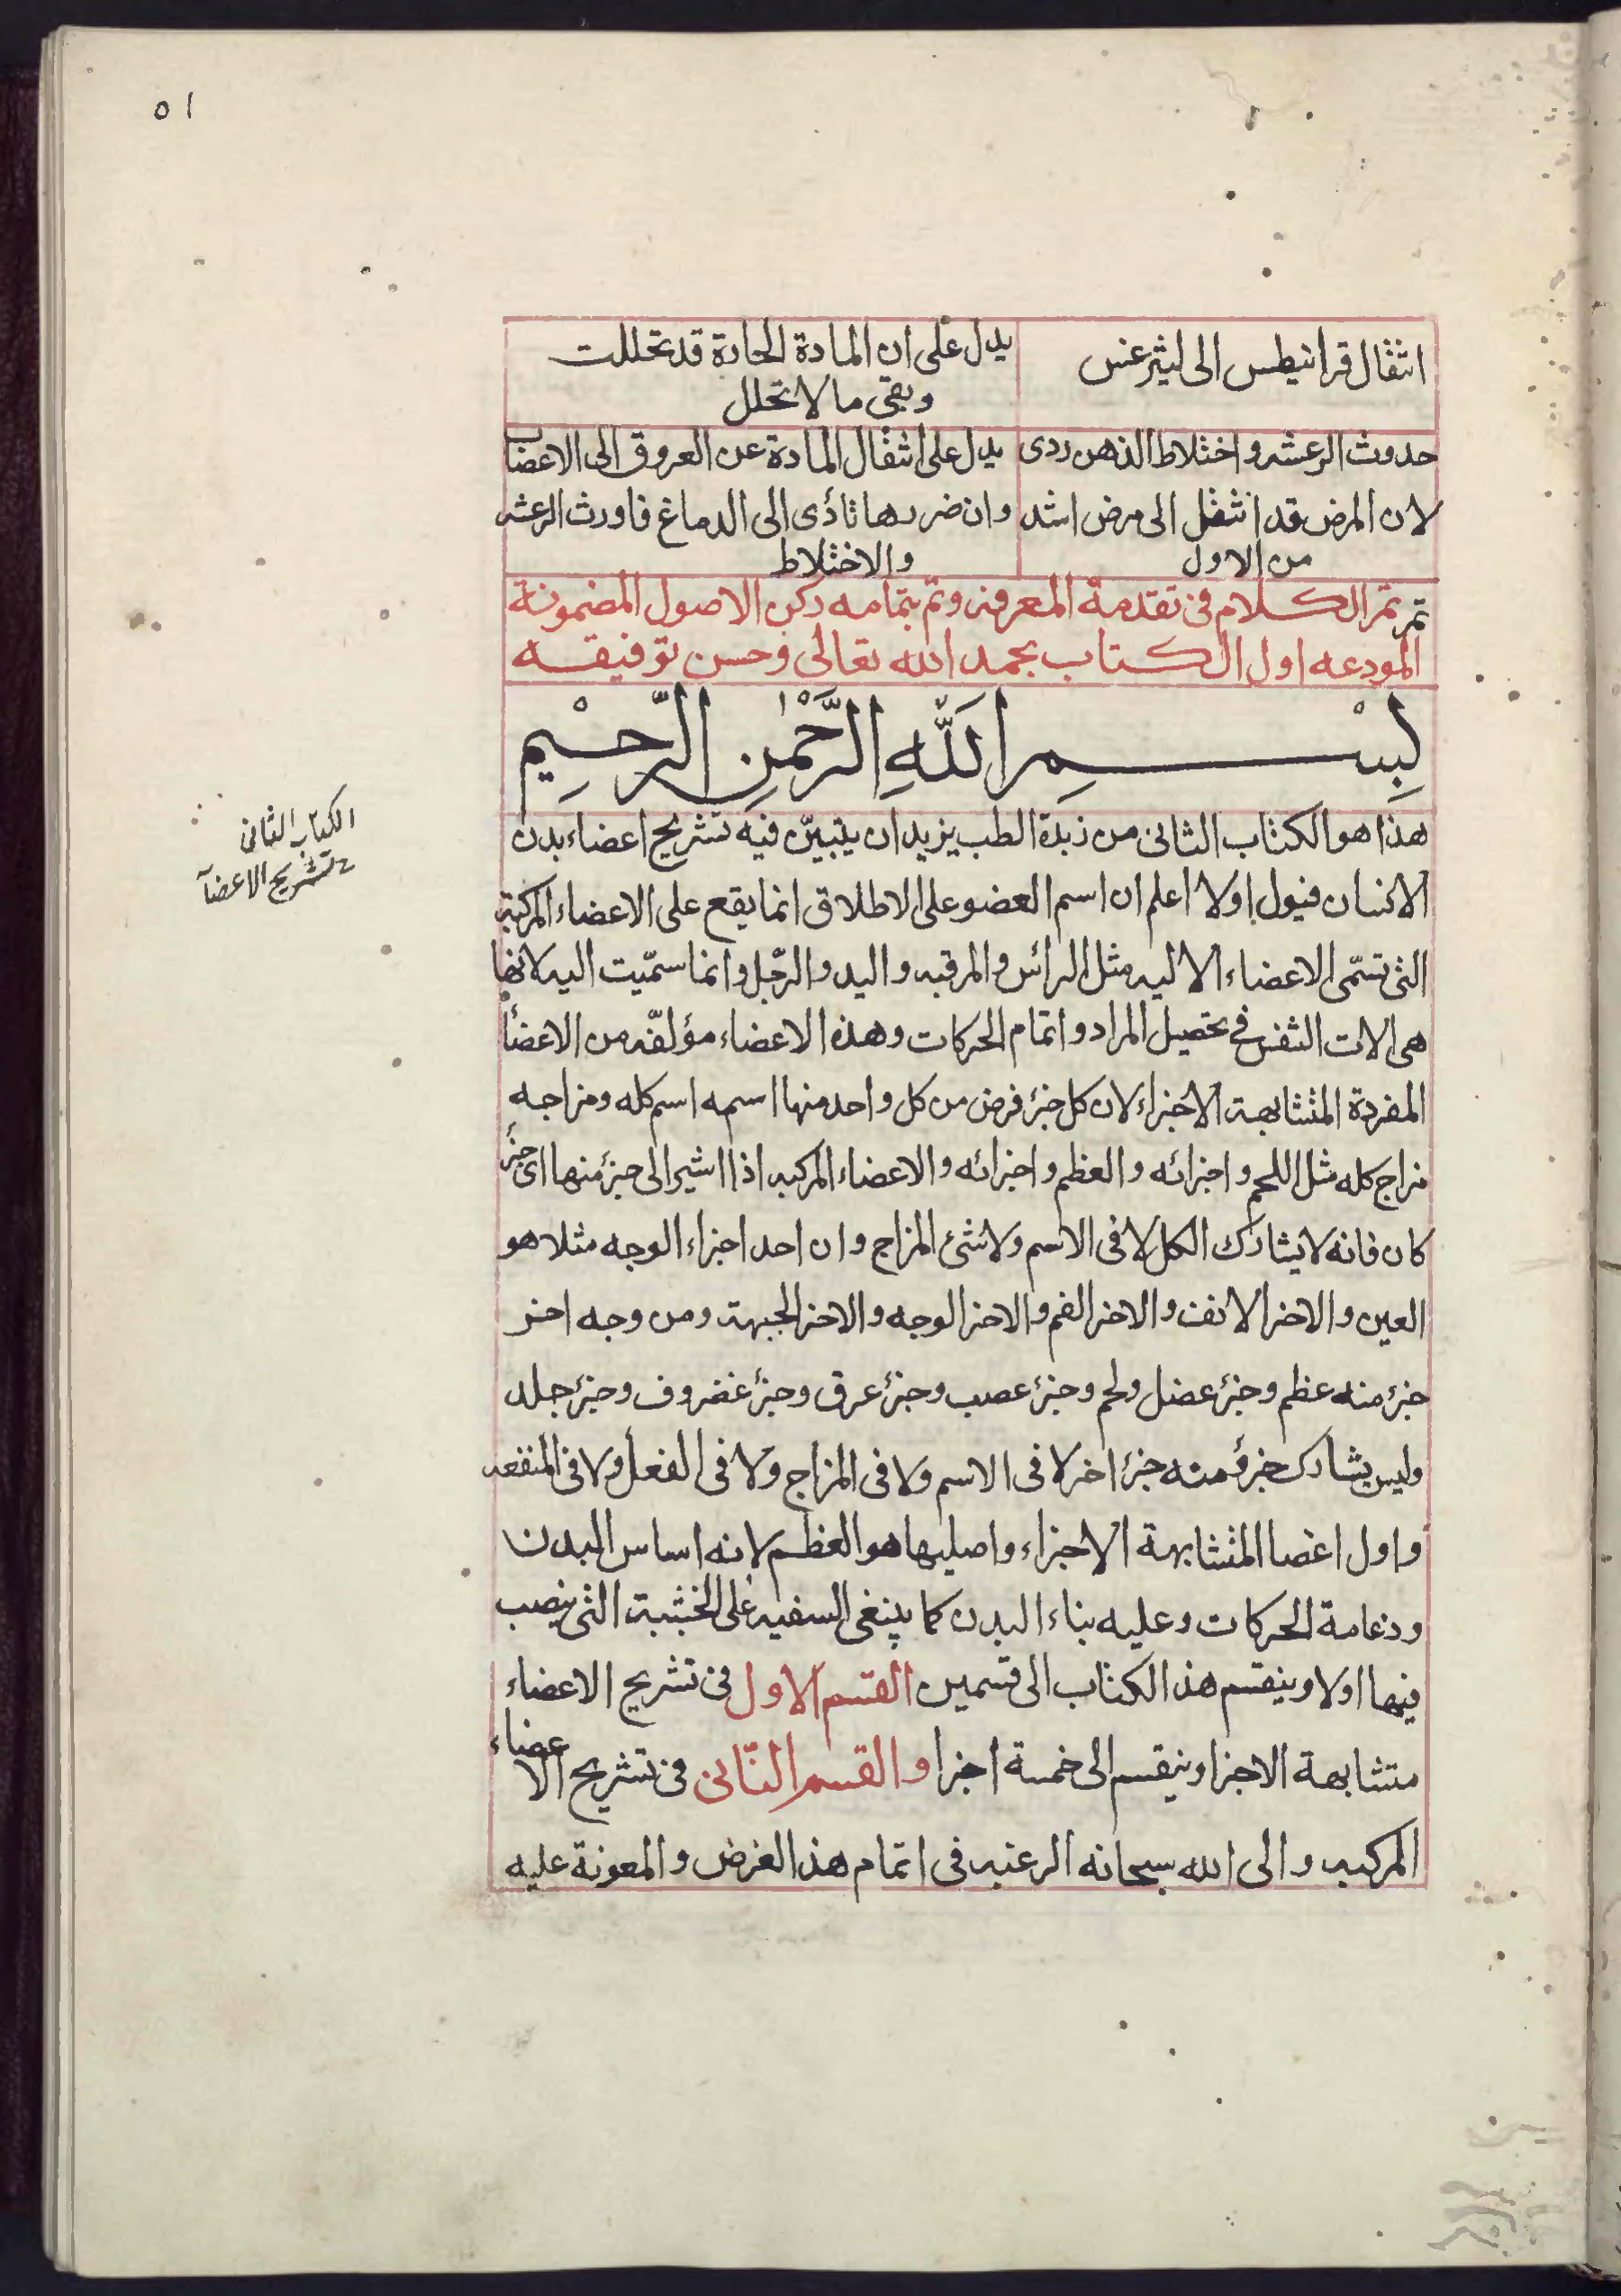 ٥١
انثقال قرانيطس الى ليثرغس
يدل على ان المادة الحادة قد تحللت
وبقى ما لا تحلل
حدوث الرعشه و اختلاط الذهن ردى
لان المرض قد انثقل الى مرض اشد
من الاول
يدل على انثقال المادة عن العروق الى الاعضاب
وان ضررها تأذى الى الدماغ فاورث الرعشه
والاختلاط
تم تم الكلام فى تقدمة المعرفه وتم بتمامه ركن الاصول المضمونة
المودعه اول الكتاب بحمد الله تعالى وحسن توفيقه
بِسْمِ اللّٰهِ الرَّحْمٰنِ الرَّحِيْمِ
الكتاب الثانى
فى تشريح الاعضآ
هذا هو الكثاب الثانى من زبدة الطب يزيد ان يتبيّن فيه تشريح اعضاء بدن
الانسان فيول اولا اعلم ان اسم العضو على الاطلاق انما يقع على الاعضاء المركبة
التى تسمّى الاعضاء الاليه مثل الرائس والمرقبه واليد والرّجل وانما سمّيت اليه لانها
هى الات النفس فى تحصيل المراد و اتمام الحركات وهذه الاعضاء مؤلفّه من الاعضأ
المفردة المتشابهة الاجزاء لان كل جزء فرض من كل واحد منها اسمه اسم كله ومزاجه
مزاج كله مثل اللحم و اجزائه والعظم و اجزائه والاعضاء المركبه اذا اشير الى جزء منها اى جزء
كان فانه لا يشارك الكل لا فى الاسم ولا شئ المزاج وان احد اجزاء الوجه مثلا هو
العين والاخر الانف والاخر الفم والاخر الوجه والاخر الجبهة ومن وجه اخر
جزء منه عظم وجزء عضل ولحم وجزء عصب وجزء عرق وجزء غضروف وجزء جلد
وليس يشارك جزؤ منه جزء اخر لا فى الاسم ولا فى المزاج ولا فى الفعل ولا فى المنفعه
واول اعضا المتشابهة الاجزاء واصليها هو العظم لانه اساس البدن
ودعامة الحركات وعليه بناء البدن كما يبنغى السفيه على الخشبة التى ينصب
فيها اولا وينقسم هذ الكتاب الى قسمين القسم الاول فى تشريح الاعضاء
متشابهة الاجزا وينقسم الى خمسة اجزا و القسم الثّانى فى تشريح الاعضاء
المركبه والى الله سبحانه الرعبه فى اتمام هذ الغرض والمعونة عليه